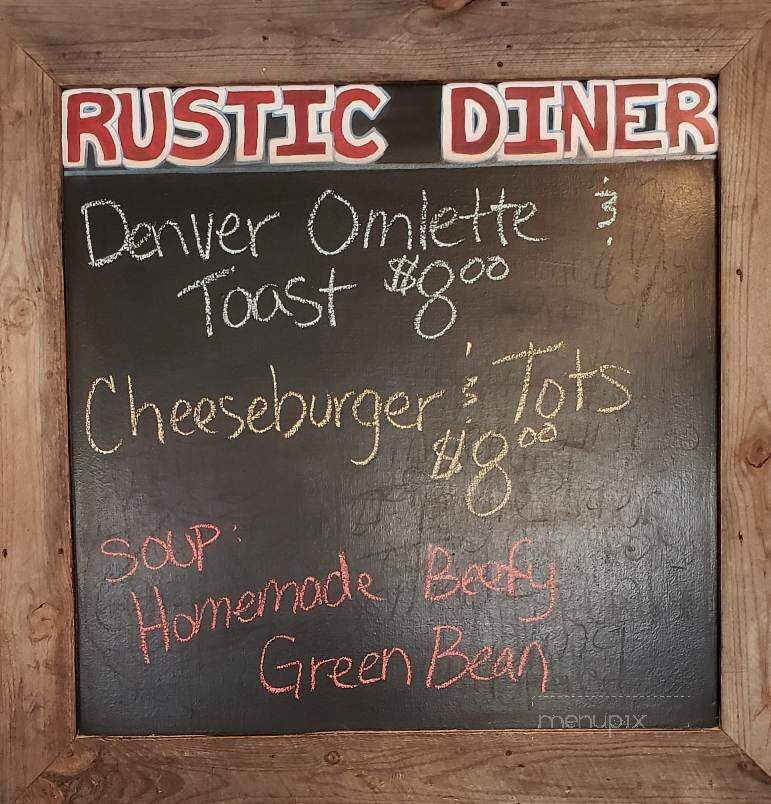 RUSTIC DINER
Denver Omlette &
Toast $8.00
Cheeseburger & Tots
$8.00
SOUP:
Homemade Beefy
Green Bean
menupix